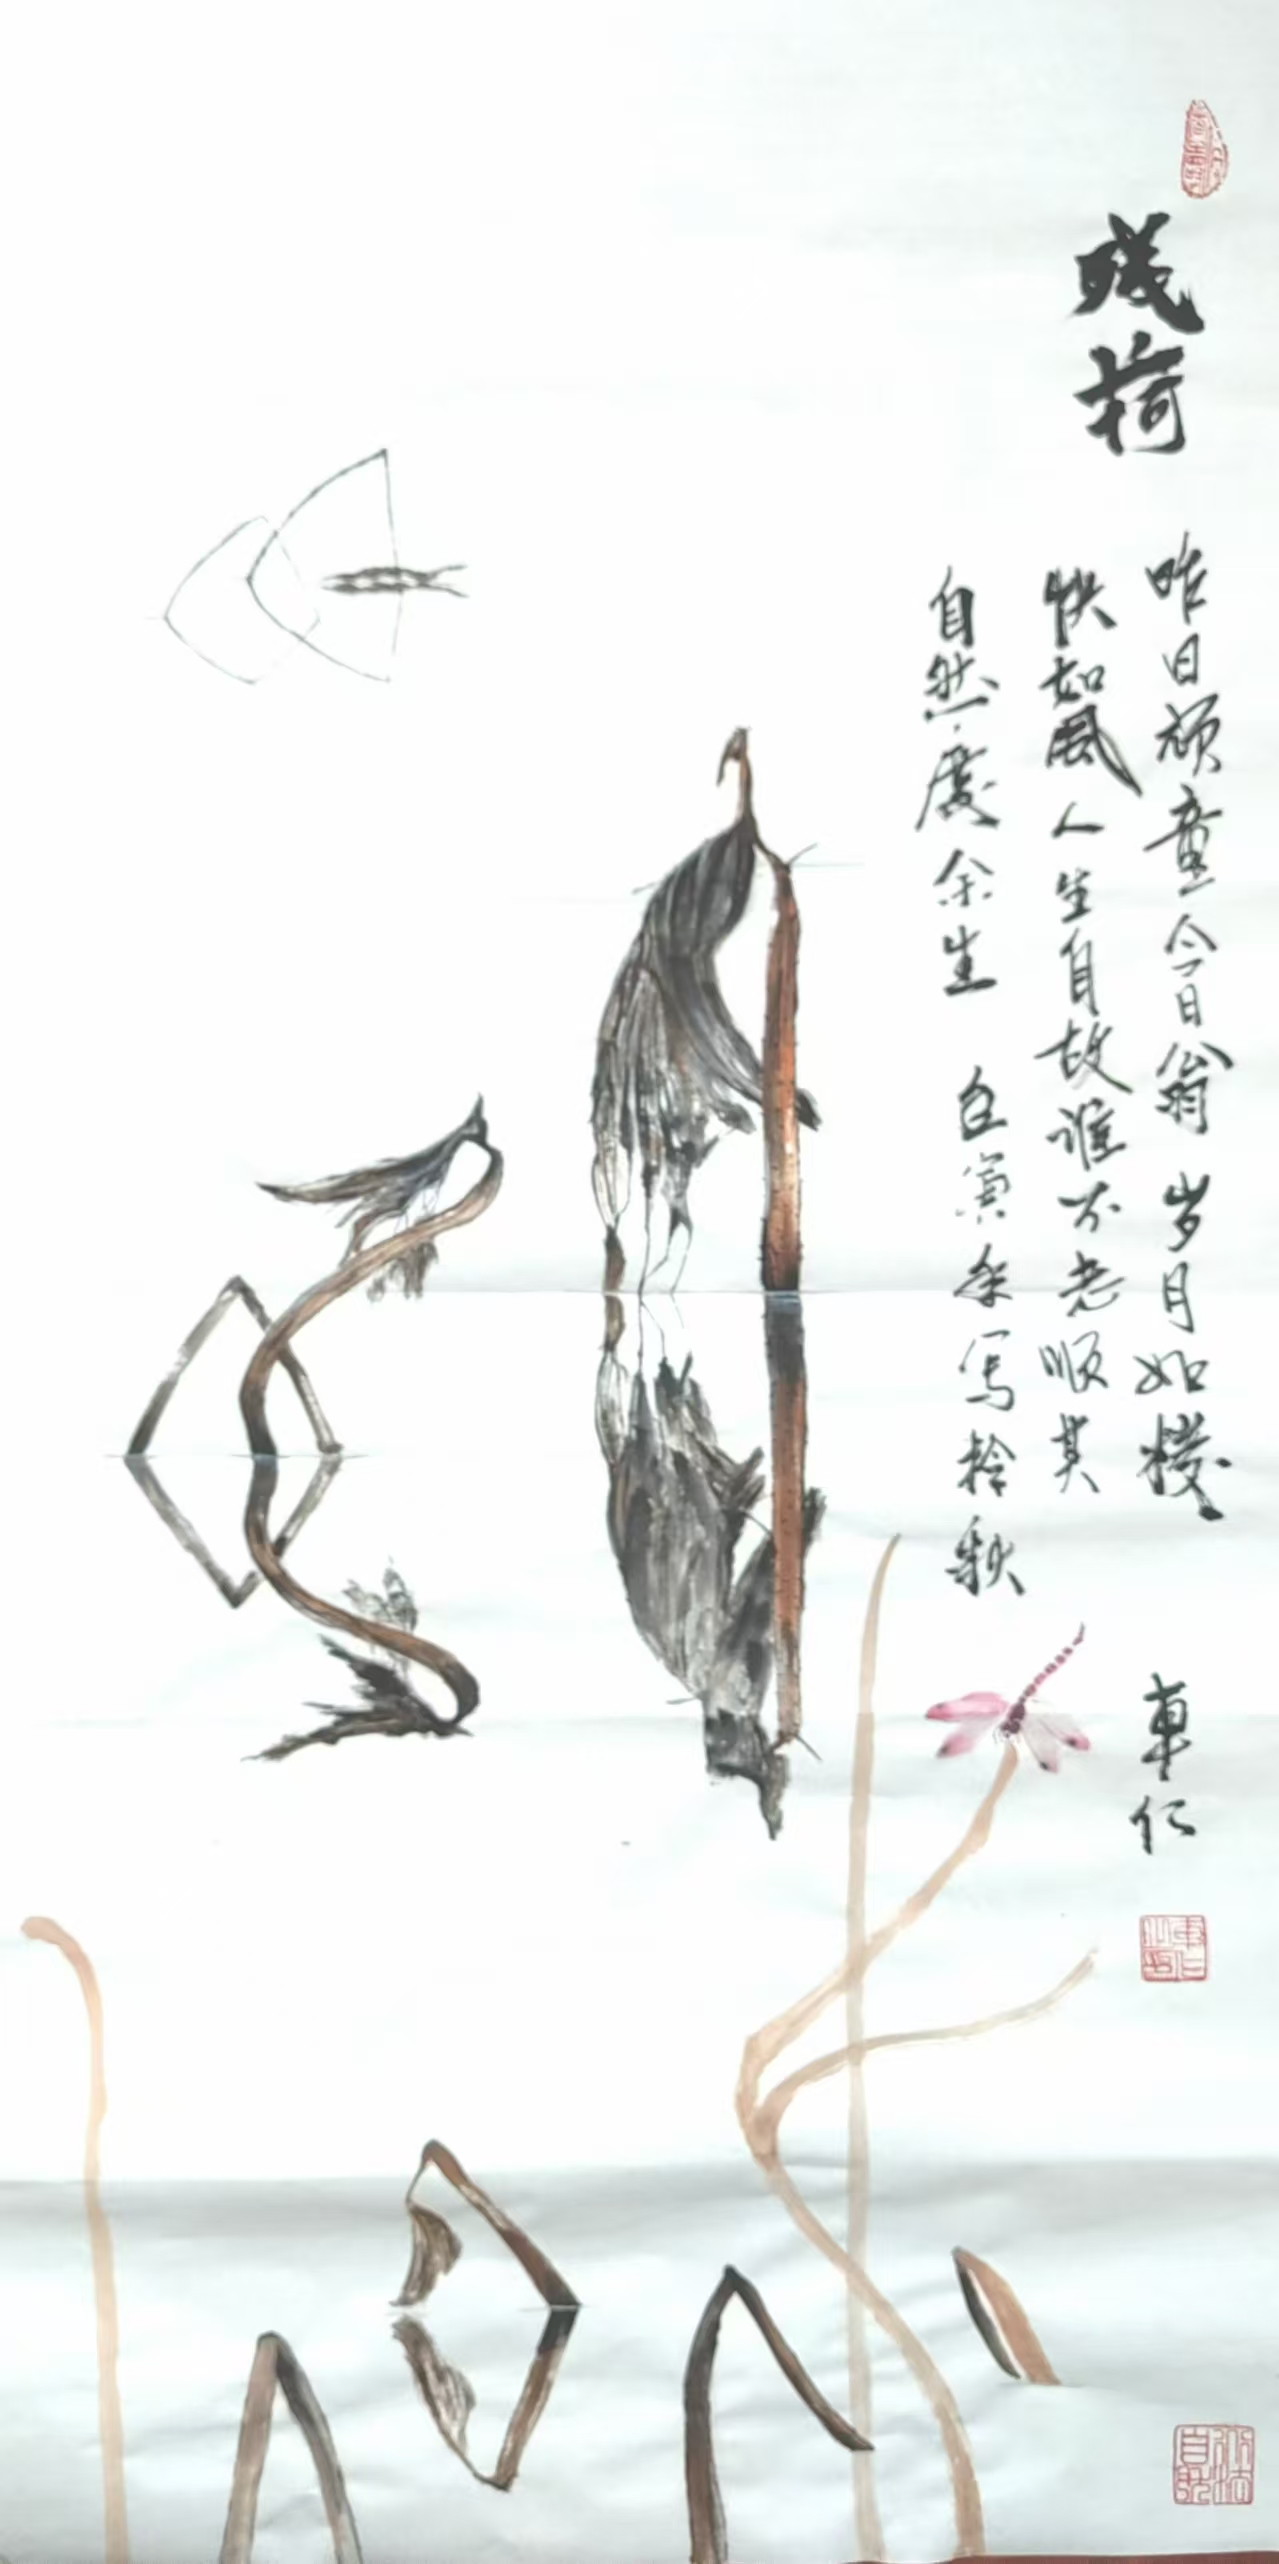 残荷
昨日顽童今日翁 岁月如梭
快如风人生自故谁不老顺其
自然度余生 壬寅年写於秋
車仁